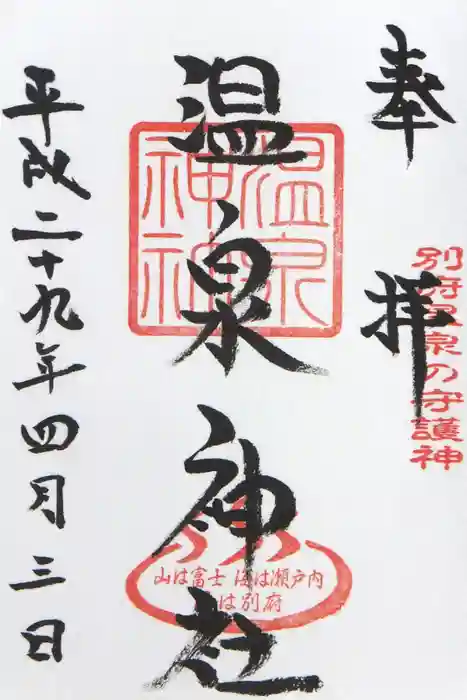 奉拝
別府温泉の守護神
温泉神社
温泉
神社
山は富士 海は瀬戸内
湯は別府
平成二十九年四月三日